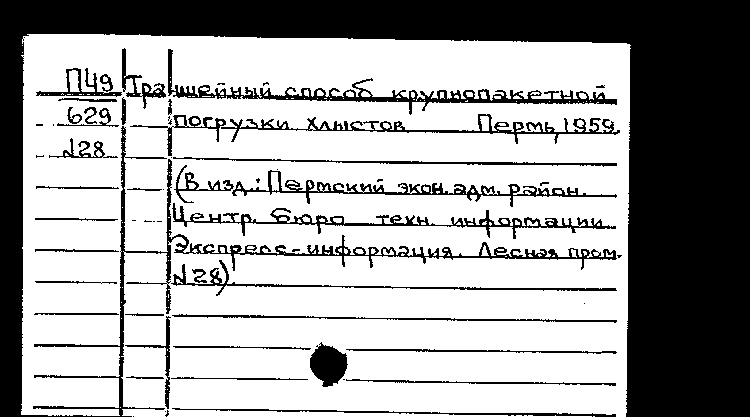 П49 Траншейный способ крупнопакетной
629 погрузки хлыстов Пермь, 1959.
№28
(В изд.: Пермский экон. адм. район.
Центр. бюро техн. информации.
Экспресс-информация. Лесная пром.
№28).